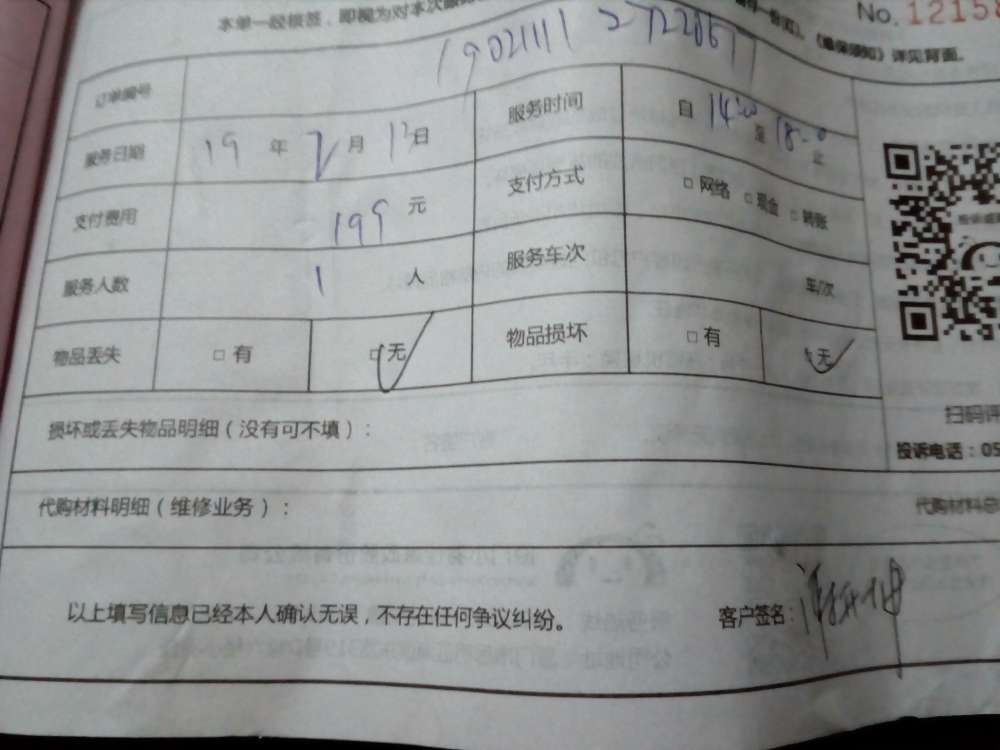 本单一经核签，即视为对本次服务
No. 12158
《维保须知》详见背面。
订单编号
服务日期 19 年 2月 12日 服务时间 自 14:00 至 18:00 止
支付费用 199 元 支付方式 □ 网络 □ 现金 □ 转账
服务人数 1 人 服务车次 车/次
物品丢失 □ 有 □ 无 物品损坏 □ 有 □ 无
损坏或丢失物品明细（没有可不填）：
扫码评
投诉电话：05
代购材料明细（维修业务）： 代购材料总
以上填写信息已经本人确认无误，不存在任何争议纠纷。 客户签名：